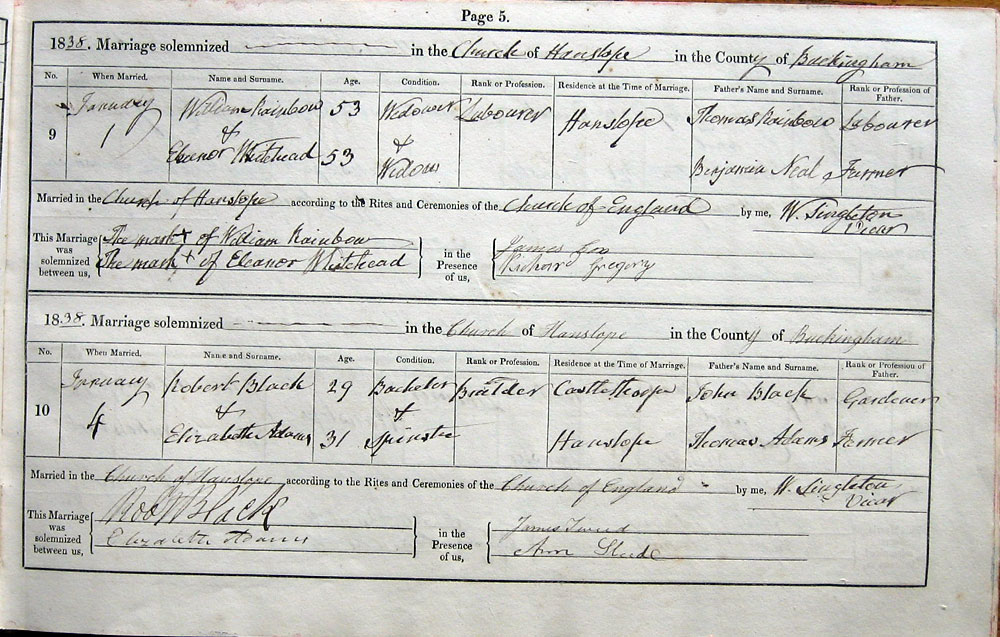 Page 5.
1838. Marriage solemnized in the Church of Hanslope in the County of Buckingham
No. When Married. Name and Surname. Age. Condition. Rank or Profession. Residence at the Time of Marriage. Father's Name and Surname. Rank or Profession of Father.
9 January 1 William Rainbow 53 Widower Labourer Hanslope Thomas Rainbow Labourer
& &
Eleanor Whitehead 53 Widow Benjamin Neal Farmer
Married in the Church of Hanslope according to the Rites and Ceremonies of the Church of England by me, W. Singleton
Vicar
This Marriage was solemnized between us, The mark + of William Rainbow
The mark + of Eleanor Whitehead
in the Presence of us, James
Richard Gregory
1838. Marriage solemnized in the Church of Hanslope in the County of Buckingham
No. When Married. Name and Surname. Age. Condition. Rank or Profession. Residence at the Time of Marriage. Father's Name and Surname. Rank or Profession of Father.
10 January 4 Robert Black 29 Bachelor Builder Castlethorpe John Black Gardener
& &
Elizabeth Adams 31 Spinster Hanslope Thomas Adams Farmer
Married in the Church of Hanslope according to the Rites and Ceremonies of the Church of England by me, W. Singleton
Vicar
This Marriage was solemnized between us, Robt Black
Elizabeth Adams
in the Presence of us, James Tweed
Ann Slade